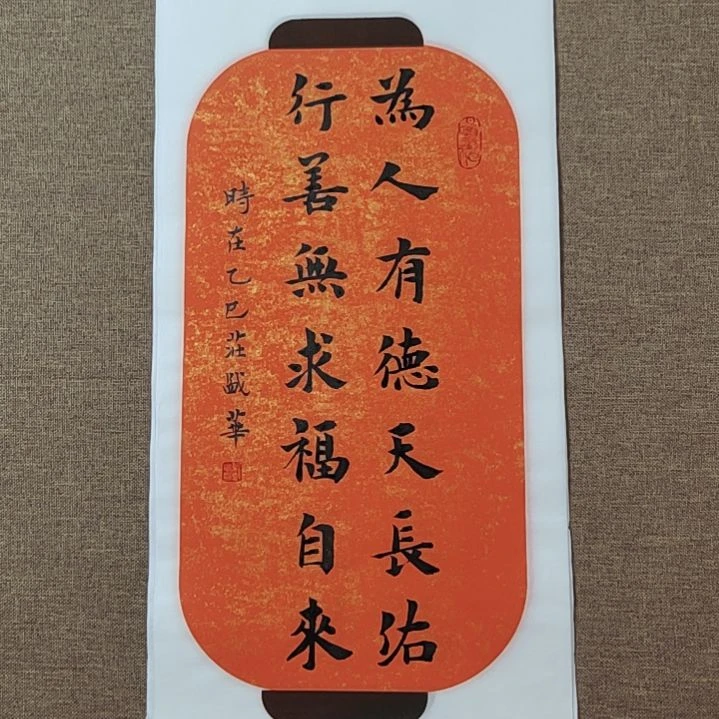 為人有德天長佑
行善無求福自來
時在乙巳莊晸華